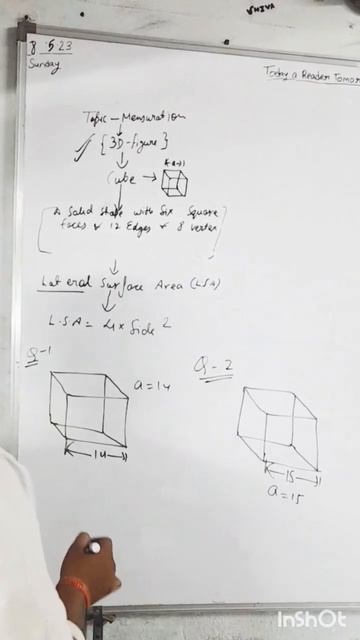 SHIVA
8.5.23
Sunday
Today a Reader Tomor
Topic - Mensuration
{3D-figure}
Cube → a
A Solid Shape with Six Square
faces & 12 Edges & 8 vertex
Lateral Surface Area (LSA)
L.S.A = 4 x Side 2
Q-1
a = 14
14
Q-2
15
a = 15
InShOt